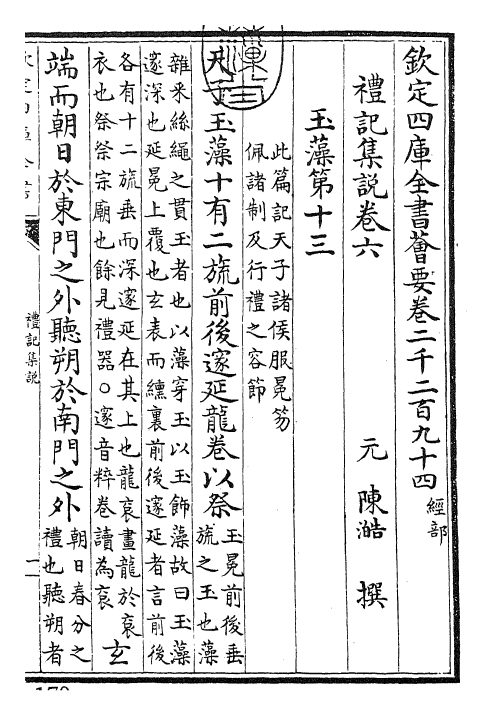 欽定四庫全書薈要卷二千二百九十四 經部
禮記集說卷六 元 陳澔 撰
玉藻第十三
此篇記天子諸侯服冕笏
佩諸制及行禮之容節
天子玉藻十有二旒前後邃延龍卷以祭
玉冕前後垂
旒之玉也藻
雜采絲繩之貫玉者也以藻穿玉以玉飾藻故曰玉藻
邃深也延冕上覆也玄表而纁裏前後邃延者言前後
各有十二旒垂而深邃延在其上也龍衮畫龍於衮
衣也祭祭宗廟也餘見禮器○邃音粹卷讀為衮
玄
端而朝日於東門之外聽朔於南門之外
朝日春分之
禮也聽朔者
禮記集說
一